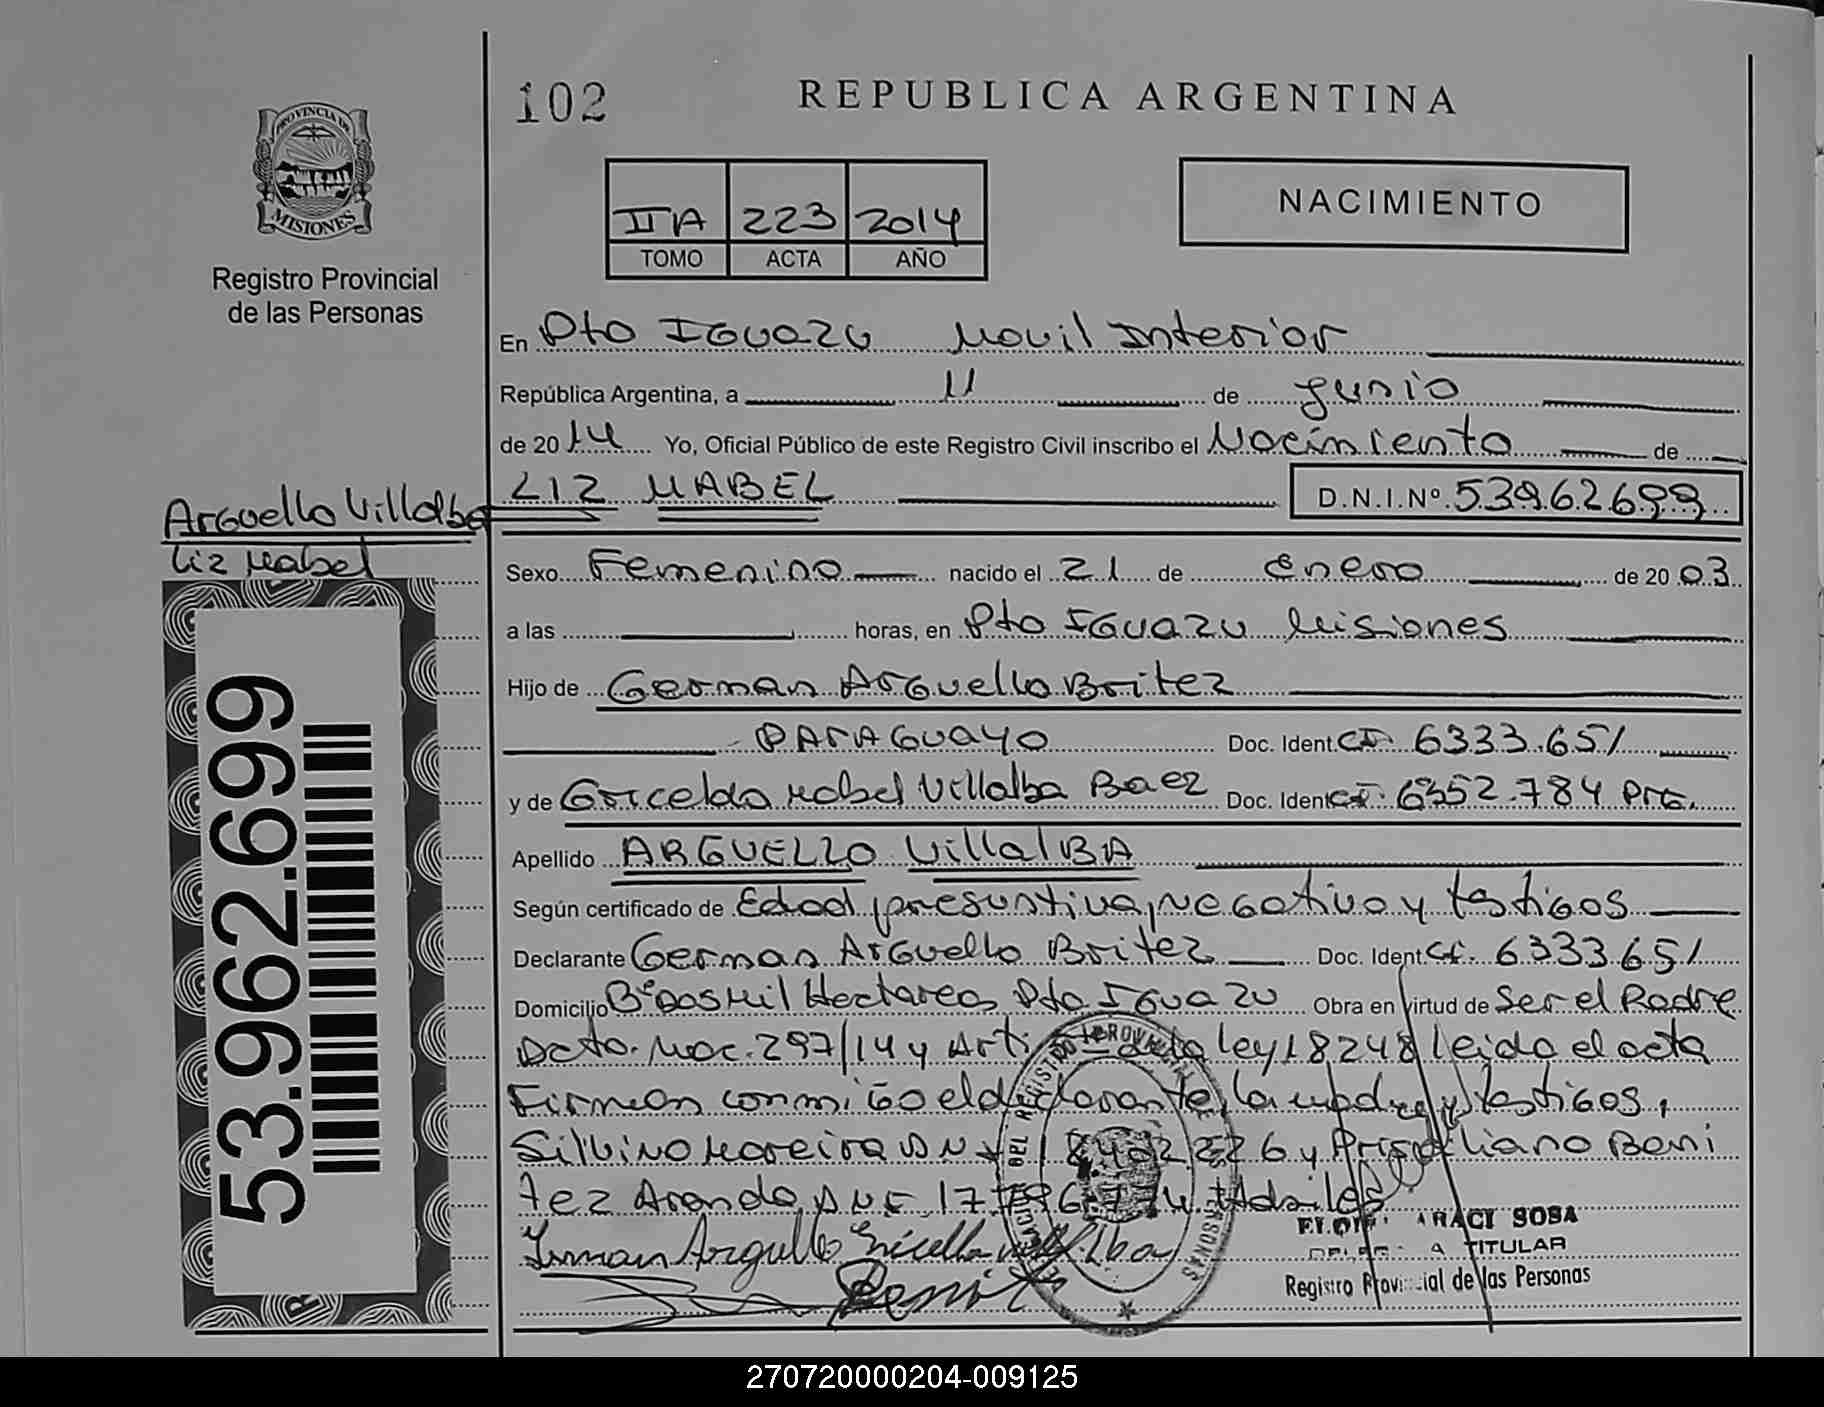 102
REPUBLICA ARGENTINA
PROVINCIA DE
MISIONES
Registro Provincial
de las Personas
IIA 223 2014
TOMO ACTA AÑO
NACIMIENTO
En Pto IGUAZU Movil Interior
República Argentina, a 11 de junio
de 2014 Yo, Oficial Público de este Registro Civil inscribo el Nacimiento de
LIZ MABEL D.N.I.Nº 53962699
Arguello Villalba
Liz Mabel
53.962.699
Sexo Femenino nacido el 21 de Enero de 2003
a las horas, en Pto IGUAZU Misiones
Hijo de German Arguello Britez
PARAGUAYO Doc. Ident. CI 6333.651
y de Griselda Mabel Villalba Baez Doc. Ident. CI 6352.784 Prg.
Apellido ARGUELLO VillalBA
Según certificado de Edad presuntiva, negativo y testigos
Declarante German Arguello Britez Doc. Ident CI. 6333.651
Domicilio Bº Dos Mil Hectareas Pto IGUAZU Obra en virtud de Ser el Padre
Dcto. Nac. 297/14 y Arti de la ley 18248 leida el acta
Firman conmigo el declarante, la madre y testigos,
Silvino Moreira DNI 18.402.226 y Prisciliano Beni
tez Aranda DNI 17.796.774
German Arguello Gricelda Villalba
Benit
ARACI SOSA
TITULAR
Registro Provincial de las Personas
270720000204-009125